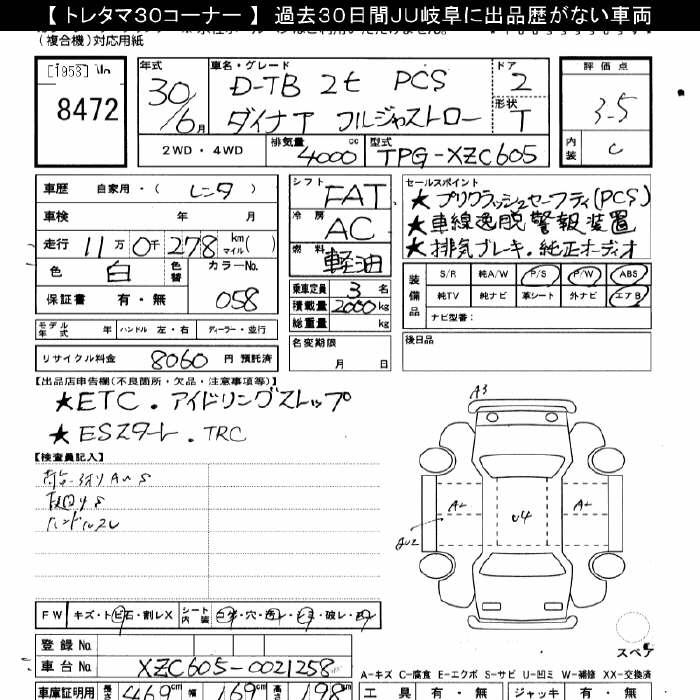 【トレタマ30コーナー】 過去30日間JU岐阜に出品歴がない車両
(複合機)対応用紙
[1953] No
8472
年式
30/6月
車名・グレード
D-TB 2t PCS
ダイナ フルジャストロー
ドア
2
形状
T
評価点
3.5
内装
C
2WD・4WD
排気量
4000cc
型式
TPG-XZC605
車歴 自家用・( レンタ )
車検 年 月
走行 11万 0千 278 km マイル( )
色 白 色替 カラーNo. 058
保証書 有・無
シフト FAT
冷房 AC
燃料 軽油
乗車定員 3 名
積載量 2000 kg
総重量 kg
セールスポイント
★プリクラッシュセーフティ(PCS)
★車線逸脱警報装置
★排気ブレーキ.純正オーディオ
装備品
S/R 純A/W P/S P/W ABS
純TV 純ナビ 革シート 外ナビ エアB
ナビ型番:
モデル年式 年 ハンドル 左・右 ディーラー・並行
リサイクル料金 8060 円 預託済
名変期限
月 日
後日品
【出品店申告欄(不良箇所・欠品・注意事項等)】
★ETC.アイドリングストップ
★ESスタート.TRC
【検査員記入】
ハンドルスレ
A3
A2
U4
A2
FW キズ・トビ石・割レX シート内装 コゲ・穴・・シミ・破レ・
登録No
車台No XZC605-0021258
スペア
A-キズ C-腐食 E-エクボ S-サビ U-凹ミ W-補修 XX-交換済
車庫証明用 長さ 469cm 幅 169cm 高さ 198cm
工具 有・無 ジャッキ 有・無